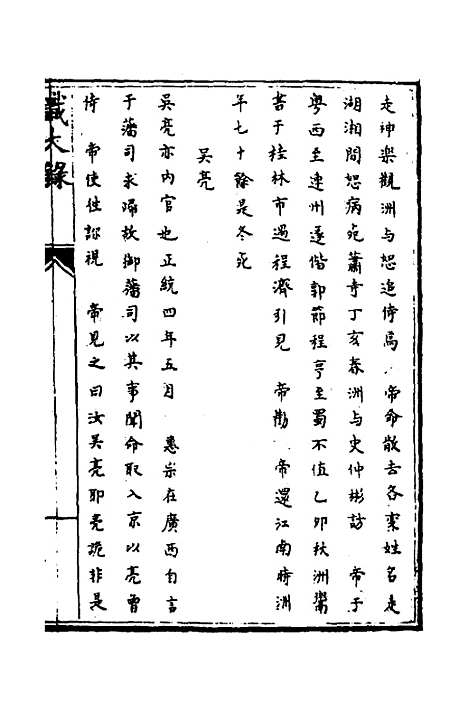 走神樂觀洲与恕追侍焉　帝命散去各棄姓名走
湖湘間恕病死蕭寺丁亥春洲与史仲彬訪　帝于
粤西至連州遂偕郭節程亨至蜀不值乙卯秋洲鬻
苦于桂林市遇程濟引見　帝勸　帝還江南時洲
年七十餘是冬死
吳亮
吳亮亦内官也正統四年五月　惠宗在廣西自言
于藩司求歸故御藩司以其事聞命取入京以亮曾
侍　帝使往診視　帝見之曰汝吳亮耶亮詭非是
識大錄